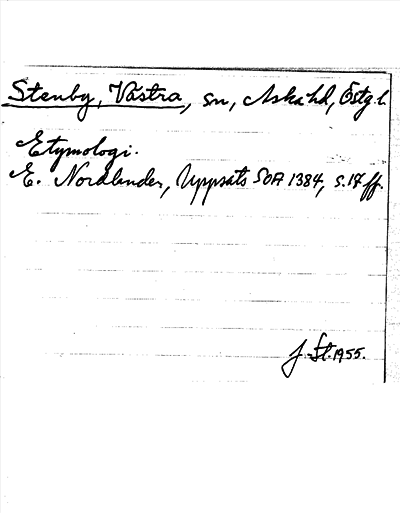 Stenby, Västra, sn, Aska hd, Östg.l.
Etymologi.
E. Nordlinder, Uppsats SOA 1384, s.17 ff.
J. St. 1955.